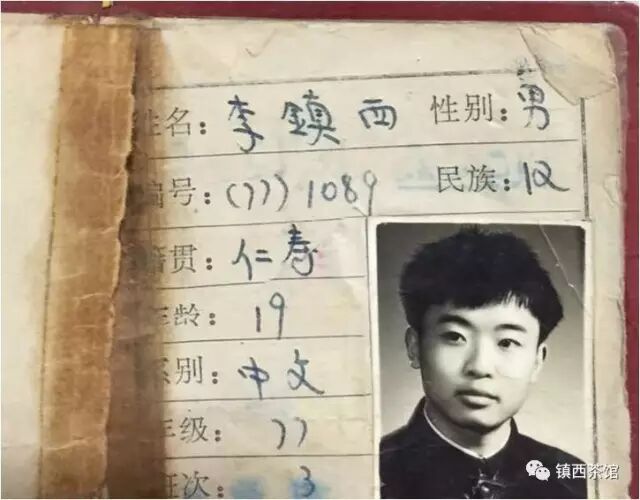 姓名：李鎮西 性别：男
编号：(77)1089 民族：汉
籍贯：仁寿
年龄：19
系别：中文
年级：77
班次 3
镇西茶馆